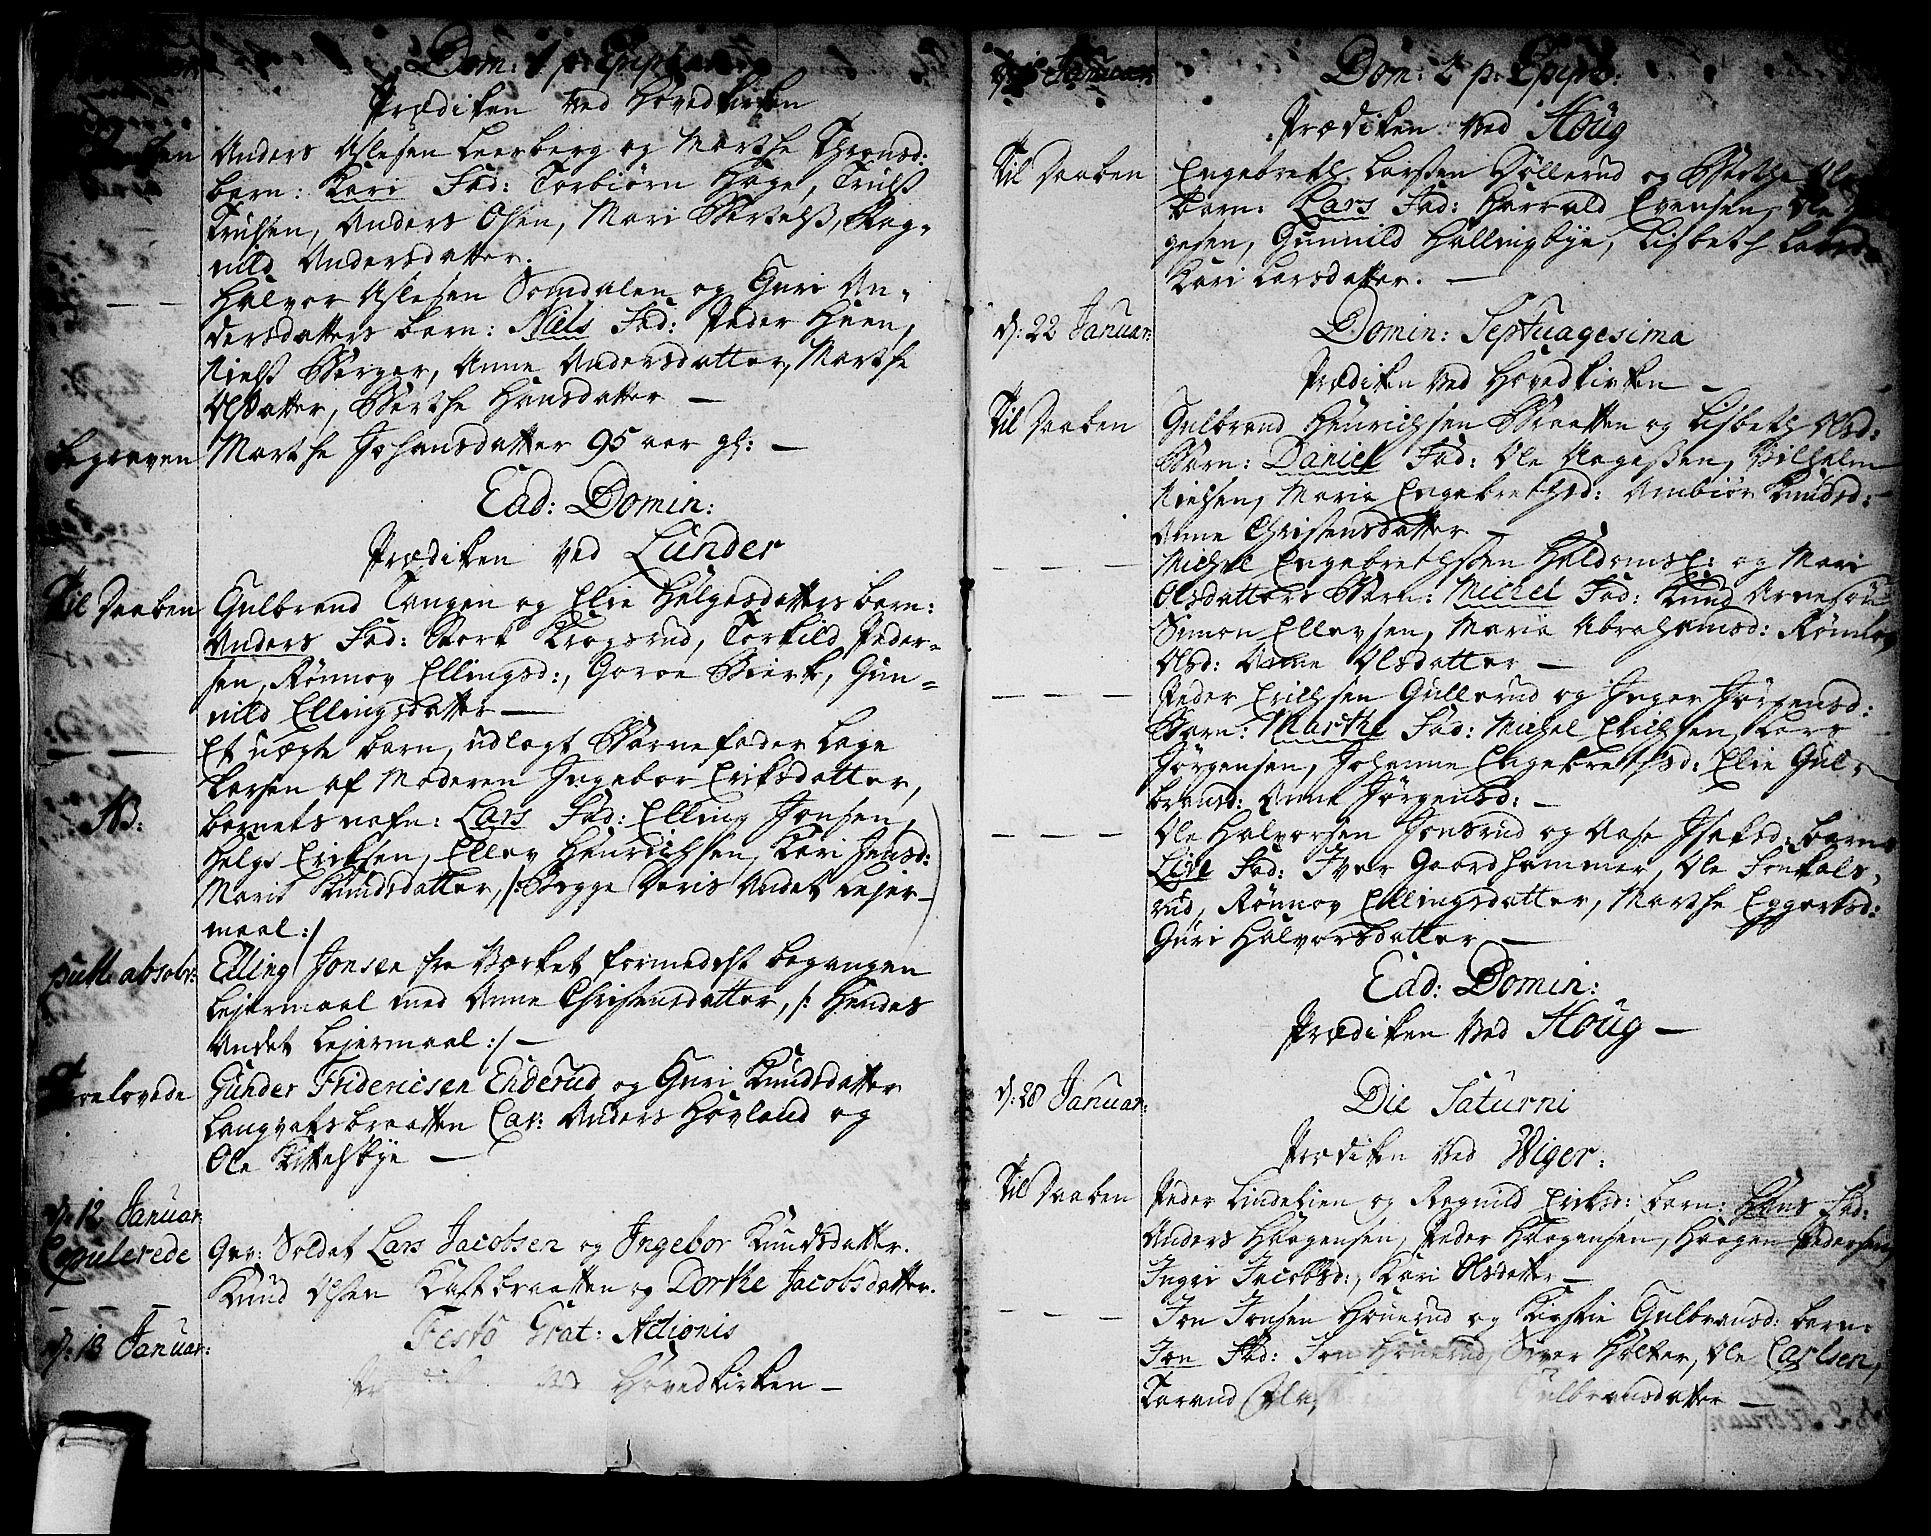 Dom: 1 p: Epiphan:
Prædiken ved Hovedkirken
Anders Aslesen Leerberg og Marthe Thronsd:
barn: Kari Fad: Torbiörn Hage, Truls
Trulsen, Anders Olsen, Mari Bertels, Rag-
nild Andersdatter.
— — Halvor Aslesen Somdalen og Guri An-
dersdatters barn: Niels Fad: Peder Heen,
Niels Berger, Anne Andersdatter, Marthe
Olsdatter, Berthe Hansdatter —
begraven Marthe Johansdatter 95 aar gl: —
Ead: Domin:
Prædiken ved Lunder
Til Daaben Gulbrand Tangen og Elie Helgesdatters barn:
Anders Fad: Stork Krogsrud, Torkild Peder-
sen, Rönnov Ellingsd:, Goroe Bierk, Gun-
nild Ellingsdatter —
— Et uægte barn, udlagt Barnefader Lage
Larsen af Moderen Ingebor Eriksdatter,
NB: barnets nafn: Lars Fad: Elling Jonsen,
Helge Eriksen, Ellev Henrichsen, Kari Jensd:
Marit Knudsdatter, /: Begge deris Andet Lejer-
maal :/
publ: absolv: Elling Jonsen fra Værket formedelst begangen
Lejermaal med Anne Christensdatter, /: Hendes
Andet Lejermaal :/ —
Trolovede Gunder Fridericsen Enderud og Guri Knudsdatter
Langvatsbraatten Cav: Anders Hovland og
Ole Kittelsbye —
d: 12 Januar
Copulerede Gev: Soldat Lars Jacobsen og Ingebor Knudsdatter.
— — — Knud Olsen Kastbraatten og Dorthe Jacobsdatter.
d: 13 Januar: Festo Grat: Actionis
ved Hovedkirken —
Januar: Dom: 2 p: Epiph:
Prædiken ved Houg
Til Daaben Engebreth Larssen Döllerud og Berthe
Barn: Lars Fad: Harrald Evensen, Ole
gesen, Gunnild Hallingbye, Lisbeth Larsd
Kari Larsdatter. —
d: 22 Januar: Domin: Septuagesima
Prædiken ved Hovedkirken —
Til Daaben Gulbrand Henrichsen Braatten og Lisbeth Olsd:
Barn: Daniel Fad: Ole Aagessen, Vilhelm
Nielsen, Marie Engebrethsd: Ambiör Knudsd:
Anne Christensdatter —
— — — Michel Engebrethssen Haldomsl: og Mari
Olsdatters Barn: Michel Fad: Knud Arnesön
Simon Ellevsen, Marie Abrahamsd: Rönnov
Olsd: Anne Olsdatter —
— — — Peder Erichsen Gullerud og Inger Jörgensd:
Barn: Marthe Fad: Michel Erichsen, Lars
Jörgensen, Johanne Engebrethsd: Elie Gul-
bransd: Anne Jörgensd: —
— — — Ole Halvorsen Jonsrud og Aase Isaksd: barn
Live Fad: Iver Gaardhammer, Ole Fonkals-
rud, Rönnov Ellingsdatter, Marthe Eggertsd:
Guri Halvorsdatter —
Ead: Domin:
Prædiken ved Houg —
d: 28 Januar: Die Saturni
Prædiken ved Wiger:
Til Daaben Peder Lindelien og Ragnild Eriksd: barn: Hans Fad:
Anders Haagensen, Peder Haagensen, Haagen Pedersen
Inger Jacobsd:, Kari Olsdatter —
— — — Jon Jonsen Houerud og Kirstie Gulbransd: barn:
Jon Fad: Jon Houerud, Iver Holker, Ole Carlsen,
Torand Gulbransdatter —